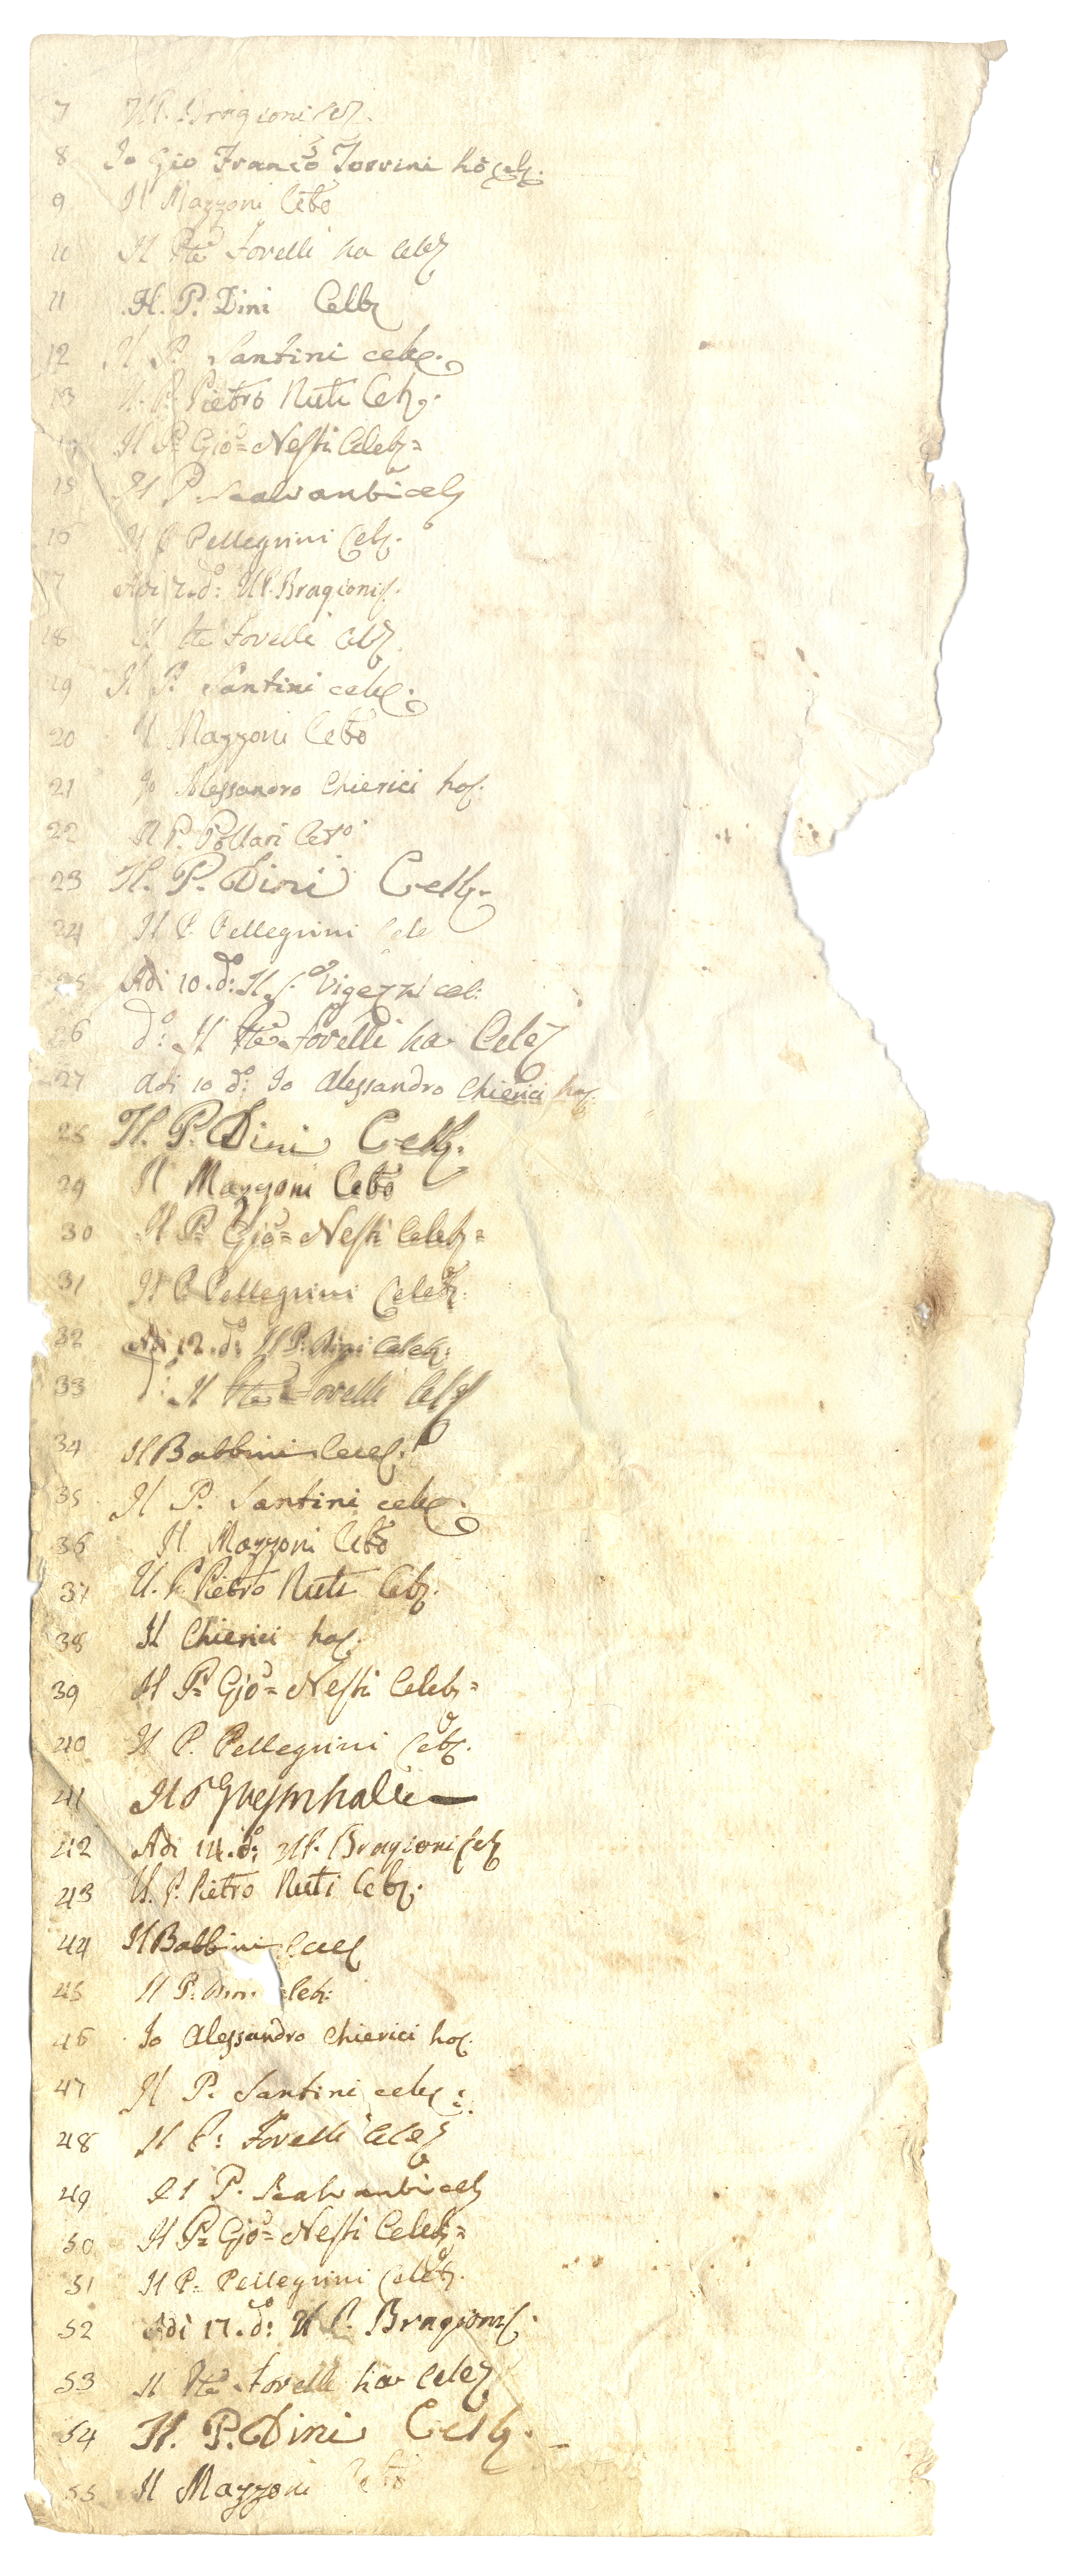 7 Il P. Bragioni cel.
8 Io Gio Franco Torrini hò cele.
9 Il Mazzoni Cebo
10 Il Pte Fovelli ha celeb
11 Il. P. Dini Celb
12 Il P. Santini celeb.
13 Il. P. Pietro Nuti Celeb.
Il P. Gio= Nesti Celeb=
15 Il P. Scalvanti celeb
16 Il P Pellegrini Celeb.
17 Adi 7. do: Il P. Bragioni C.
18 Il Pte Fovelli celeb
19 Il P. Santini celeb.
20 Il Mazzoni Cebo
21 Io Alessandro Chierici ho C.
22 Il P. Pollari Cebo
23 Il. P. Dini Celb.
24 Il P. Pellegrini Cele
25 Adi 10. do: Il S. Vigezzi cel:
26 do: Il Pte Fovelli ha Celeb
27 Adi 10 do: Io Alessandro Chierici ho C.
28 Il. P. Dini Celb.
29 Il Mazzoni Cebo
30 Il P. Gio= Nesti Celeb=
31 Il P Pellegrini Celeb.
32 Adi 12. do: Il P. Dini Celeb:
33 do: Il Pte Fovelli Celeb
34 Il Babbini Cel.
35 Il P. Santini celeb.
36 Il Mazzoni Cebo
37 Il. P. Pietro Nuti Celeb.
38 Il Chierici ha C.
39 Il P. Gio= Nesti Celeb=
40 Il P. Pellegrini Celeb.
41 Il P
42 Adi 14. do: Il P. Bragioni Cel
43 Il. P. Pietro Nuti Celeb.
44 Il Babbini Cel
45 Il P. Dini Celeb:
46 Io Alessandro Chierici ho C.
47 Il P. Santini celeb.
48 Il P: Fovelli Celeb
49 Il P. Scalvanti celeb
50 Il P. Gio= Nesti Celeb=
51 Il P. Pellegrini Celeb.
52 Adi 17. do: Il P. Bragioni C.
53 Il Pte Fovelli ha Celeb
54 Il. P. Dini Celb.
55 Il Mazzoni Cebo